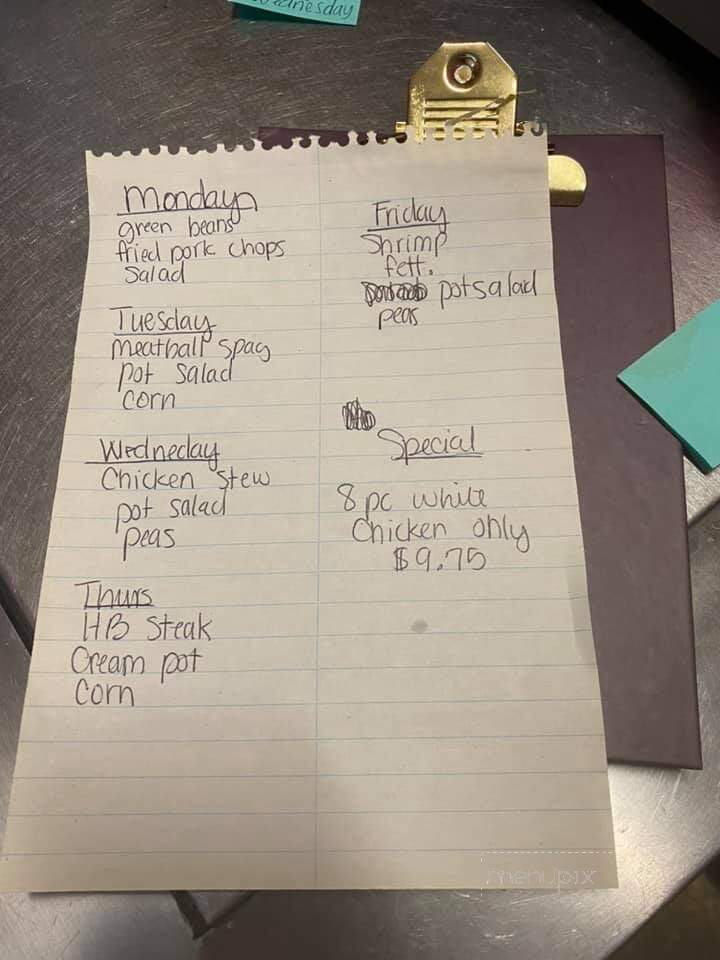 Wednesday
Monday
green beans
fried pork chops
Salad
Tuesday
meatball spag
pot salad
corn
Wedneday
Chicken stew
pot salad
peas
Thurs
HB Steak
Cream pot
corn
Friday
Shrimp
fett.
potsalad
peas
Special
8 pc white
Chicken only
$9.75
menupix